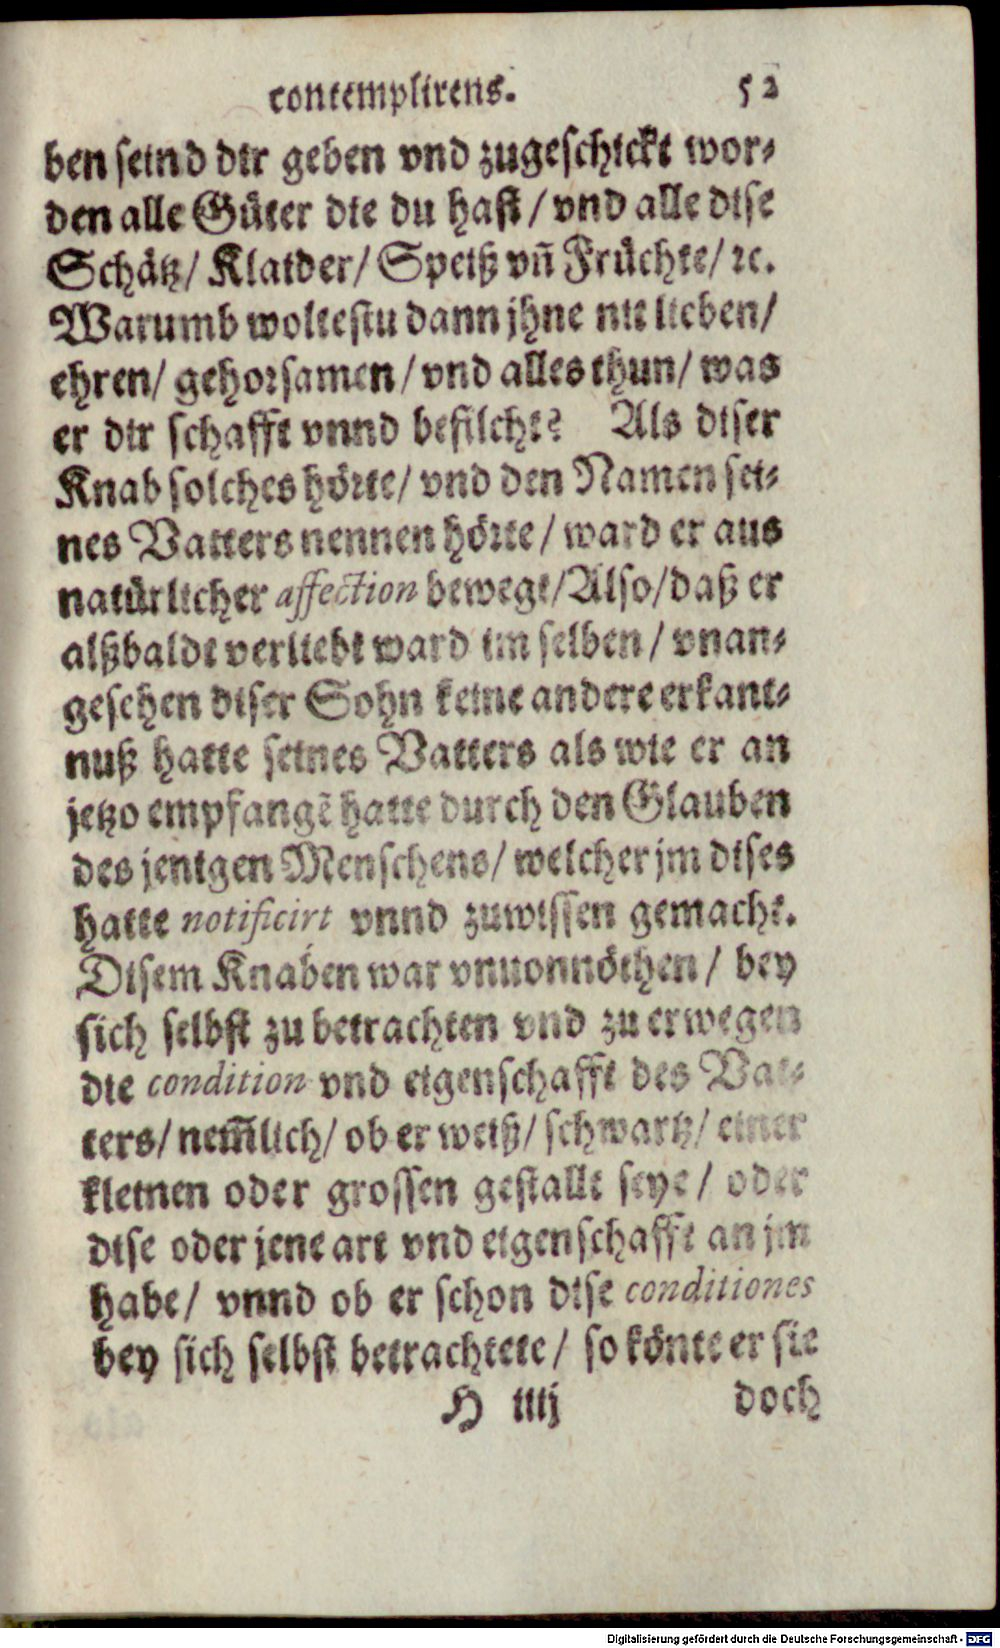 contemplirens. 52
ben seind dir geben vnd zugeschickt wor-
den alle Gůter die du hast / vnd alle dise
Schätz / Klaider / Speiß vñ Früchte / ꝛc.
Warumb woltestu dann jhne nit lieben /
ehren / gehorsamen / vnd alles thun / was
er dir schafft vnnd befilcht? Als diser
Knab solches hörte / vnd den Namen sei-
nes Vatters nennen hörte / ward er aus
natürlicher affection bewegt / Also / daß er
alßbaldt verliebt ward im selben / vnan-
gesehen diser Sohn keine andere erkant-
nuß hatte seines Vatters als wie er an
jetzo empfangẽ hatte durch den Glauben
des jenigen Menschens / welcher jm dises
hatte notificirt vnnd zuwissen gemacht.
Disem Knaben war vnuonnöthen / bey
sich selbst zu betrachten vnd zu erwegen
die condition vnd eigenschafft des Vat-
ters / nem̃lich / ob er weiß / schwartz / einer
kleinen oder grossen gestallt seye / oder
dise oder jene art vnd eigenschafft an jm
habe / vnnd ob er schon dise conditiones
bey sich selbst betrachtete / so könte er sie
H iiij doch
Digitalisierung gefördert durch die Deutsche Forschungsgemeinschaft - DFG